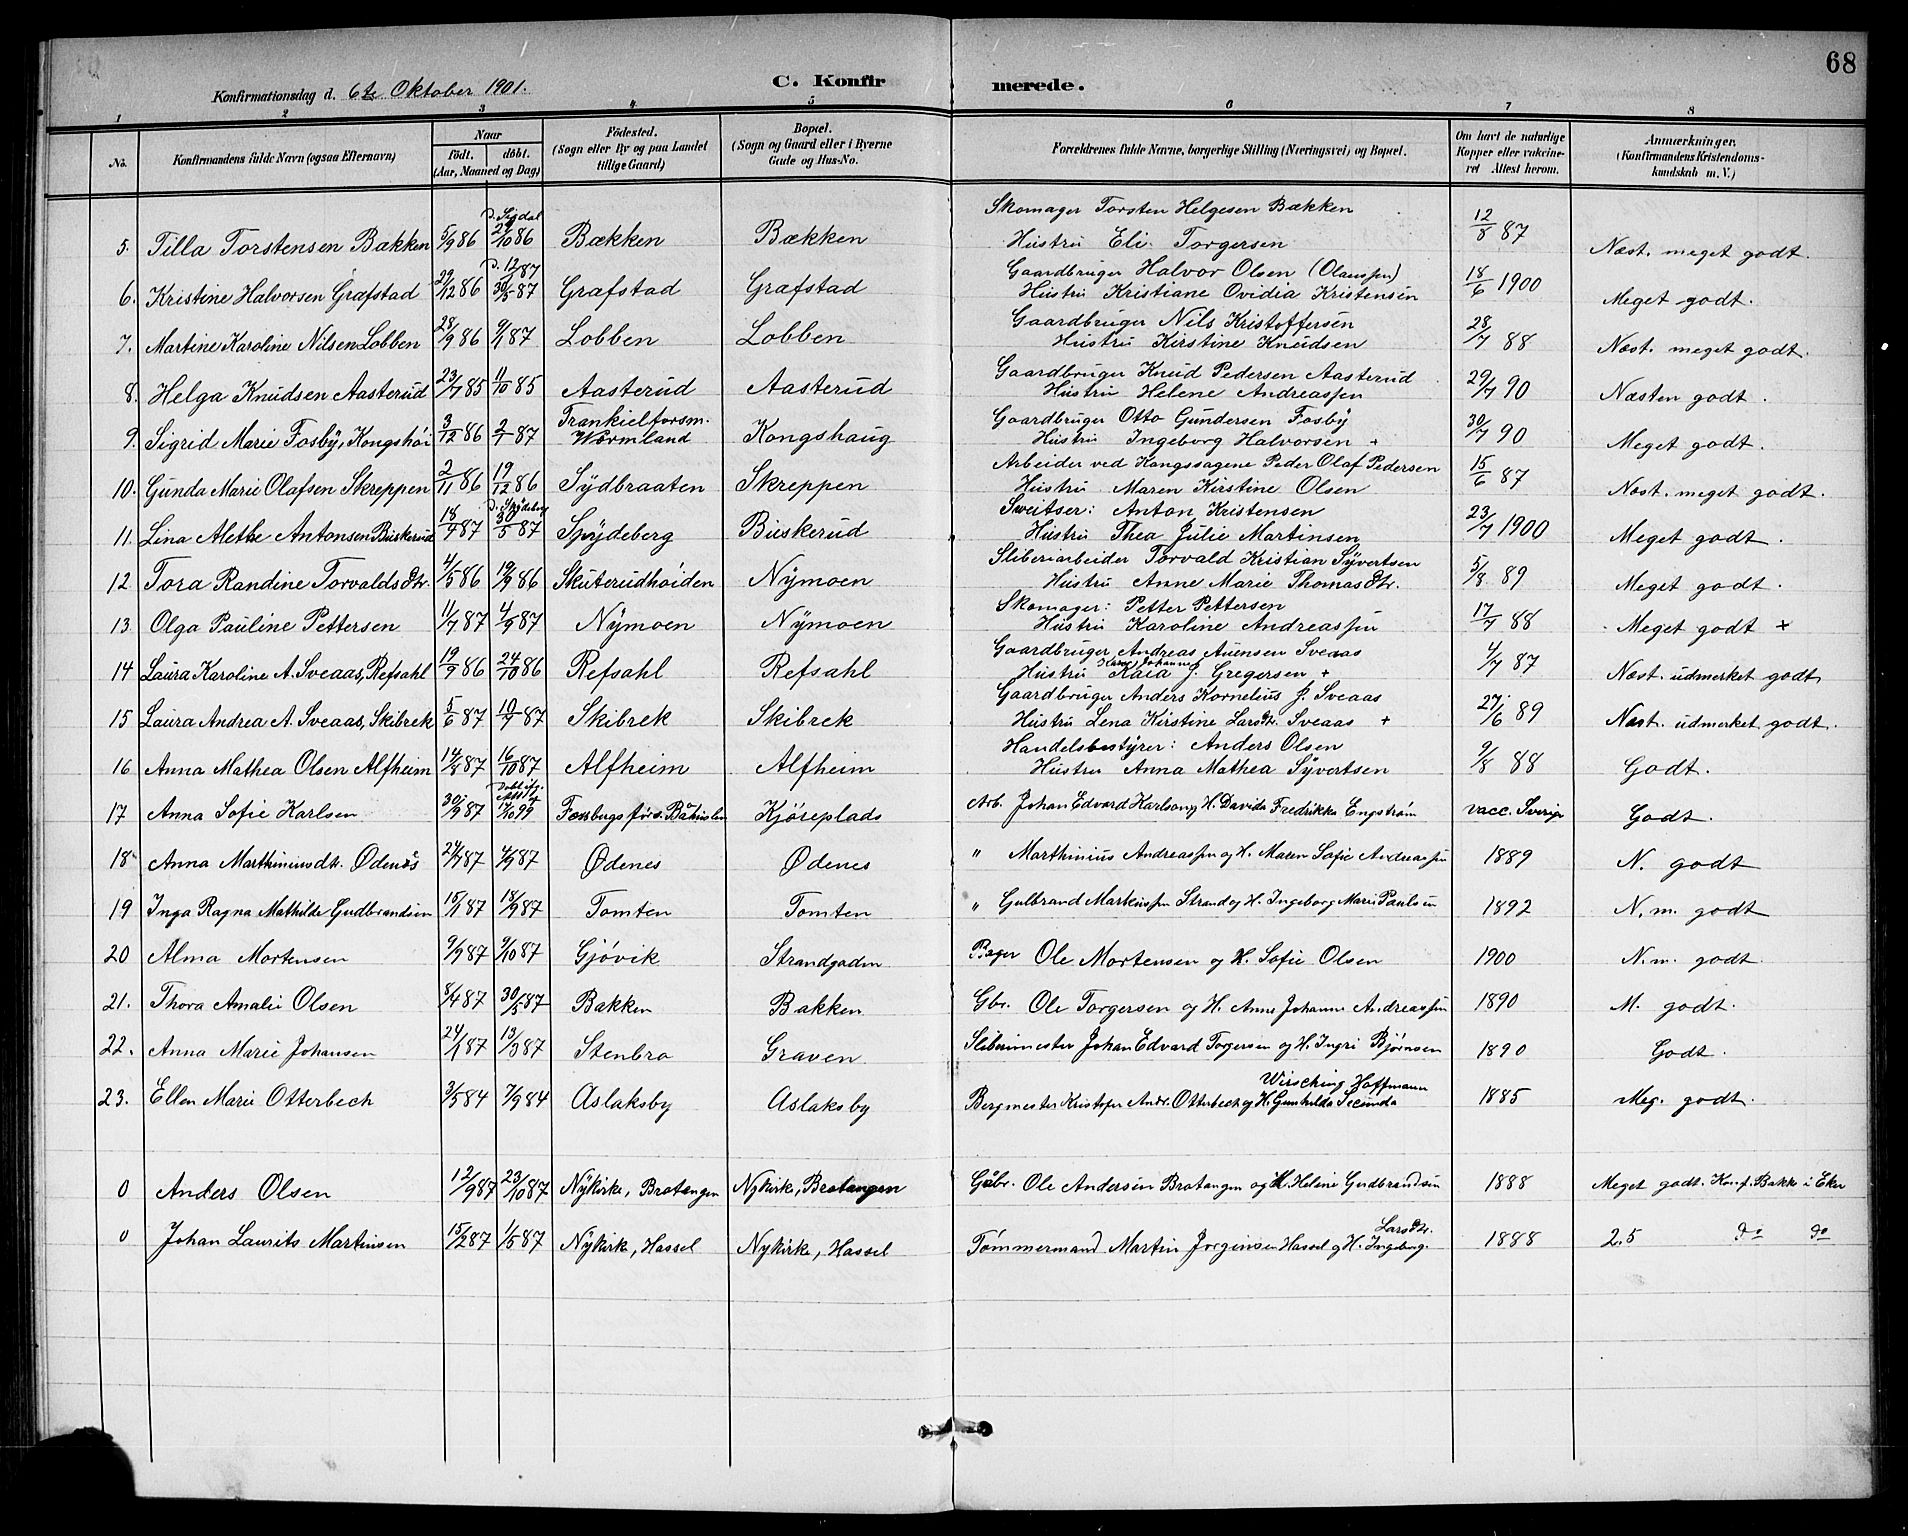 68
C. Konfirmerede.
Konfirmationsdag d. 6te Oktober 1901.
1 2 3 4 5 6 7 8
No. Konfirmandens fulde Navn (ogsaa Efternavn) Naar født. døbt. (Aar, Maaned og Dag) Fødested. (Sogn eller By og paa Landet tillige Gaard) Bopæl. (Sogn og Gaard eller i Byerne Gade og Hus-No. Forældrenes fulde Navne, borgerlige Stilling (Næringsvei) og Bopæl. Om havt de naturlige Kopper eller vakcineret Attest herom. Anmærkninger. (Konfirmandens Kristendomskundskab m. V.)
5. Tilla Torstensen Bækken 5/9 86 d. Sigdal 24/10 86 Bækken Bækken Skomager Torsten Helgesen Bækken Hustru Eli Torgersen 12/8 87 Næst. meget godt.
6. Kristine Halvorsen Græfstad 29/12 86 d. 12/87 30/5 87 Græfstad Græfstad Gaardbruger Halvor Olsen (Olaussen) Hustru Kristiane Ovidia Kristensen 18/6 1900 Meget godt.
7. Martine Karoline Nilsen Lobben 28/9 86 9/1 87 Lobben Lobben Gaardbruger Nils Kristoffersen Hustru Kirstine Knudsen 28/7 88 Næst. meget godt.
8. Helga Knudsen Aasterud 23/7 85 11/10 85 Aasterud Aasterud Gaardbruger Knud Pedersen Aasterud Hustru Helene Andreassen 29/7 90 Næsten godt.
9. Sigrid Marie Fosby, Kongshöi 3/12 86 2/1 87 Trankielforsm. Wermland Kongshaug Gaardbruger Otto Gundersen Fosby Hustru Ingeborg Halvorsen + 30/7 90 Meget godt.
10. Gunda Marie Olafsen Skreppen 2/11 86 19/12 86 Sydbraaten Skreppen Arbeider ved Kongssagene Peder Olaf Pedersen Hustru Maren Kirstine Olsen 15/6 87 Næst. meget godt.
11. Lina Alethe Antonsen Buskerud 18/4 87 d. Spydeberg 30/5 87 Spydeberg Buskerud Sveitser: Anton Kristensen Hustru Thea Julie Martinsen 23/7 1900 Meget godt.
12 Tora Randine Torvaldsdtr. 4/5 86 19/9 86 Skuterudhöiden Nymoen Sliberiarbeider Torvald Kristian Syvertsen Hustru Anne Marie Thomasdtr. 5/8 89 Meget godt.
13 Olga Pauline Pettersen 11/7 87 4/9 87 Nymoen Nymoen Skomager: Petter Pettersen Hustru Karoline Andreassen 17/7 88 Meget godt +
14 Laura Karoline A. Sveaas, Refsahl 19/9 86 24/10 86 Refsahl Refsahl Gaardbruger Andreas Auensen Sveaas Hustru Kaia J. Gregersen + 4/7 87 Næst. udmerket godt
15 Laura Andrea A. Sveaas, Skibrek 5/6 87 10/7 87 Skibrek Skibrek Gaardbruger Anders Kornelius J. Sveaas Hustru Lena Kirstine Larsdtr. Sveaas + 27/6 89 Næst. udmerket godt.
16 Anna Mathea Olsen Alfheim 14/8 87 16/10 87 Alfheim Alfheim Handelsbestyrer: Anders Olsen Hustru Anna Mathea Syvertsen 9/8 88 Godt.
17 Anna Sofie Karlsen 30/9 87 17/10 99 Kjöreplads Arb. Johan Edvard Karlson og H. Davida Fredrikka Engstrøm vacc. Sverige Godt.
18 Anna Marthiniusdtr. Ødenes 24/7 87 4/9 87 Ødenes Ødenes " Marthinius Andreassen og H. Maren Sofie Andreassen 1889 N. godt
19 Inga Ragna Mathilde Gudbrandsen 15/1 87 18/9 87 Tomten Tomten " Gulbrand Markussen Strand og H. Ingeborg Marie Paulsen 1892 N. m. godt
20 Alma Mortensen 9/9 87 9/10 87 Gjövik Strandgaden Bager Ole Mortensen og H. Sofie Olsen 1900 N. m. godt
21. Thora Amalie Olsen 8/4 87 30/5 87 Bakken Bakken Gbr. Ole Torgersen og H. Anne Johanne Andreassen 1890 M. godt.
22. Anna Marie Johansen 24/1 87 13/3 87 Stenbro Graven Slibermester Johan Edvard Torgersen og H. Ingri Bjørnsen 1890 Godt.
23. Ellen Marie Otterbech 3/5 84 7/9 84 Aslaksby Aslaksby Bergmester Kristofer Andr. Otterbech og H. Gunhilda Secunda Wirsching Hoffmann 1885 Meg. godt.
0 Anders Olsen 12/9 87 23/10 87 Nykirke, Brotangen Nykirke, Brotangen Gåbr. Ole Andersen Brotangen og H. Helene Gudbrandsen 1888 Meget godt. Konf. Bakke i Eker
0 Johan Laurits Martinsen 15/2 87 1/5 87 Nykirke, Hassel Nykirke, Hassel Tömmermand Martin Jorginsen Hassel og H. Ingeborg Larsdtr. 1888 2.5 do do